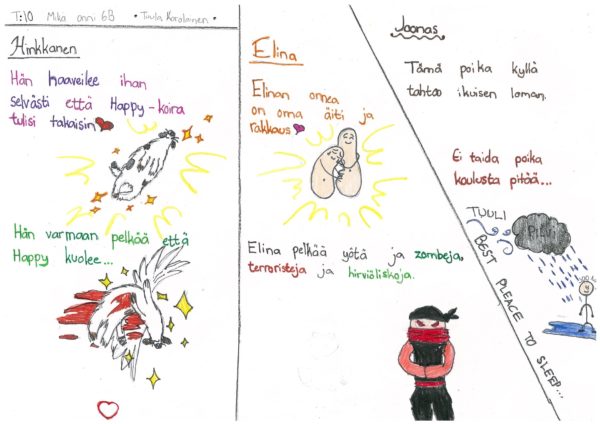 T:10 Mikä onni 6B • Tuula Karalainen •
Hinkkanen
Hän haaveilee ihan
selvästi että Happy-koira
tulisi takaisin
Hän varmaan pelkää että
Happy kuolee...
Elina
Elinan onnea
on oma äiti ja
rakkaus
Elina pelkää yötä ja zombeja,
terroristeja ja hirviöliskoja.
Joonas
Tämä poika kyllä
tahtoo ikuisen loman.
Ei taida poika
koulusta pitää...
TUULI
PILVI
BEST PLEACE TO SLEEP...